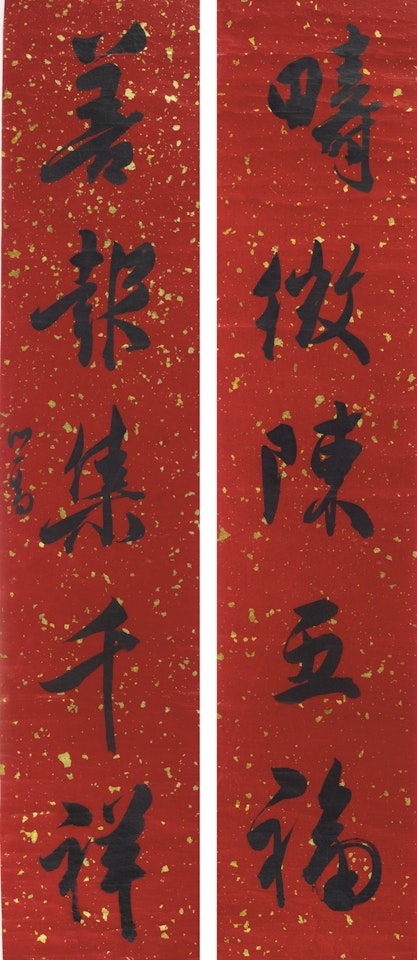 疇徵陳五福
善報集千祥
心畬